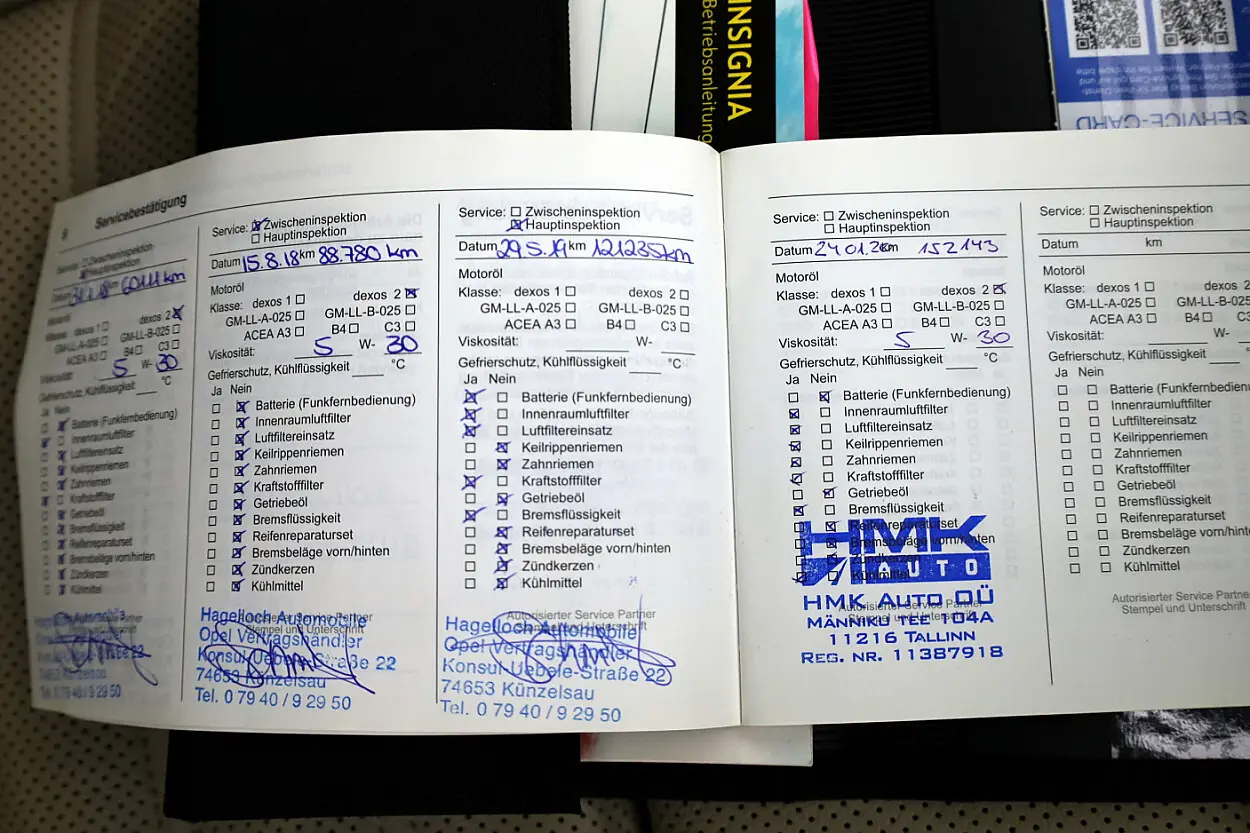 INSIGNIA
Betriebsanleitung
SERVICE-CARD
8 Servicebestätigung
Service: ☐ Zwischeninspektion
☒ Hauptinspektion
Datum km
Motoröl
Klasse: dexos 1 ☐ dexos 2 ☒
GM-LL-A-025 ☐ GM-LL-B-025 ☐
ACEA A3 ☐ B4 ☐ C3 ☐
Viskosität: 5 W- 30
Gefrierschutz, Kühlflüssigkeit °C
Ja Nein
Batterie (Funkfernbedienung)
Innenraumluftfilter
Luftfiltereinsatz
Keilrippenriemen
Zahnriemen
Kraftstofffilter
Getriebeöl
Bremsflüssigkeit
Reifenreparaturset
Bremsbeläge vorn/hinten
Zündkerzen
Kühlmittel
Service: ☒ Zwischeninspektion
☐ Hauptinspektion
Datum 15.8.18 km 88.780 km
Motoröl
Klasse: dexos 1 ☐ dexos 2 ☒
GM-LL-A-025 ☐ GM-LL-B-025 ☐
ACEA A3 ☐ B4 ☐ C3 ☐
Viskosität: 5 W- 30
Gefrierschutz, Kühlflüssigkeit °C
Ja Nein
☐ ☒ Batterie (Funkfernbedienung)
☐ ☒ Innenraumluftfilter
☐ ☒ Luftfiltereinsatz
☐ ☒ Keilrippenriemen
☐ ☒ Zahnriemen
☐ ☒ Kraftstofffilter
☐ ☒ Getriebeöl
☐ ☒ Bremsflüssigkeit
☐ ☒ Reifenreparaturset
☐ ☒ Bremsbeläge vorn/hinten
☐ ☒ Zündkerzen
☐ ☒ Kühlmittel
Autorisierter Service Partner
Stempel und Unterschrift
Hagelloch Automobile
Opel Vertragshändler
Konsul-Uebele-Straße 22
74653 Künzelsau
Tel. 0 79 40 / 9 29 50
Service: ☐ Zwischeninspektion
☒ Hauptinspektion
Datum 29.5.19 km 121235 km
Motoröl
Klasse: dexos 1 ☐ dexos 2 ☐
GM-LL-A-025 ☐ GM-LL-B-025 ☐
ACEA A3 ☐ B4 ☐ C3 ☐
Viskosität: W-
Gefrierschutz, Kühlflüssigkeit °C
Ja Nein
☒ ☐ Batterie (Funkfernbedienung)
☒ ☐ Innenraumluftfilter
☒ ☐ Luftfiltereinsatz
☐ ☒ Keilrippenriemen
☐ ☒ Zahnriemen
☒ ☐ Kraftstofffilter
☐ ☒ Getriebeöl
☒ ☐ Bremsflüssigkeit
☐ ☒ Reifenreparaturset
☐ ☒ Bremsbeläge vorn/hinten
☐ ☒ Zündkerzen
☐ ☒ Kühlmittel
Autorisierter Service Partner
Stempel und Unterschrift
Hagelloch Automobile
Opel Vertragshändler
Konsul-Uebele-Straße 22
74653 Künzelsau
Tel. 0 79 40 / 9 29 50
Service: ☐ Zwischeninspektion
☐ Hauptinspektion
Datum 24.01.2 km 152143
Motoröl
Klasse: dexos 1 ☐ dexos 2 ☒
GM-LL-A-025 ☐ GM-LL-B-025 ☐
ACEA A3 ☐ B4 ☐ C3 ☐
Viskosität: 5 W- 30
Gefrierschutz, Kühlflüssigkeit °C
Ja Nein
☐ ☒ Batterie (Funkfernbedienung)
☒ ☐ Innenraumluftfilter
☒ ☐ Luftfiltereinsatz
☒ ☐ Keilrippenriemen
☒ ☐ Zahnriemen
☒ ☐ Kraftstofffilter
☐ ☒ Getriebeöl
☒ ☐ Bremsflüssigkeit
Reifenreparaturset
Bremsbeläge vorn/hinten
Zündkerzen
Kühlmittel
Autorisierter Service Partner
Stempel und Unterschrift
HMK
AUTO
HMK AUTO OÜ
MÄNNIKU TEE 104A
11216 TALLINN
REG. NR. 11387918
Service: ☐ Zwischeninspektion
☐ Hauptinspektion
Datum km
Motoröl
Klasse: dexos 1 ☐ dexos 2
GM-LL-A-025 ☐ GM-LL-B-025
ACEA A3 ☐ B4 ☐ C3
Viskosität: W-
Gefrierschutz, Kühlflüssigkeit
Ja Nein
☐ ☐ Batterie (Funkfernbedienun
☐ ☐ Innenraumluftfilter
☐ ☐ Luftfiltereinsatz
☐ ☐ Keilrippenriemen
☐ ☐ Zahnriemen
☐ ☐ Kraftstofffilter
☐ ☐ Getriebeöl
☐ ☐ Bremsflüssigkeit
☐ ☐ Reifenreparaturset
☐ ☐ Bremsbeläge vorn/hint
☐ ☐ Zündkerzen
☐ ☐ Kühlmittel
Autorisierter Service Partner
Stempel und Unterschrift